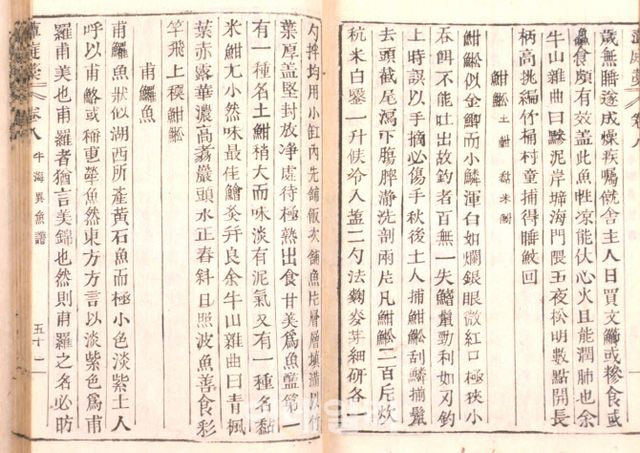 歲無睡遂成燥疾嘱僦舍主人日買文鰤或糝食或
魚食頗有效盖此魚性凉能伏心火且能潤肺也余
牛山雜曲曰黝泥岸埤海門隈五夜松明數點開長
柄高挑編竹桶村童捕得睡鮫回
魽鮏 土魽 黏米魽
魽鮏似金鯽而小鱗渾白如爛銀眼微紅口極狹小
吞餌不能吐出故釣者百無一失鰭鬣勁利如刃釣
上時誤以手摘必傷手秋後土人捕魽鮏刮鱗揃鬣
去頭截尾瀉下膓脬瀞洗剖兩片凡魽鮏二百斤炊
秔米白鑿一升候冷入盬二勺法麴麥芽細研各一
勺拌均用小缸內先舖飯次舖魚片層層塡滿以竹
葉厚盖堅封放凈處待極熟出食甘美爲魚醢第一
有一種名土魽稍大而味淡有泥氣又有一種名黏
米魽尤小然味最佳鱠炙幷良余牛山雜曲曰靑楓
葉赤露華濃高蒭巖頭水正舂斜日照波魚善食彩
竿飛上穤魽鮏
甫鱺魚
甫鱺魚狀似湖西所產黃石魚而極小色淡紫土人
呼以甫㗉或稱甫犖魚然東方方言以淡紫色爲甫
羅甫美也甫羅者猶言美錦也然則甫羅之名必昉
卷八
牛海異魚譜
五十一